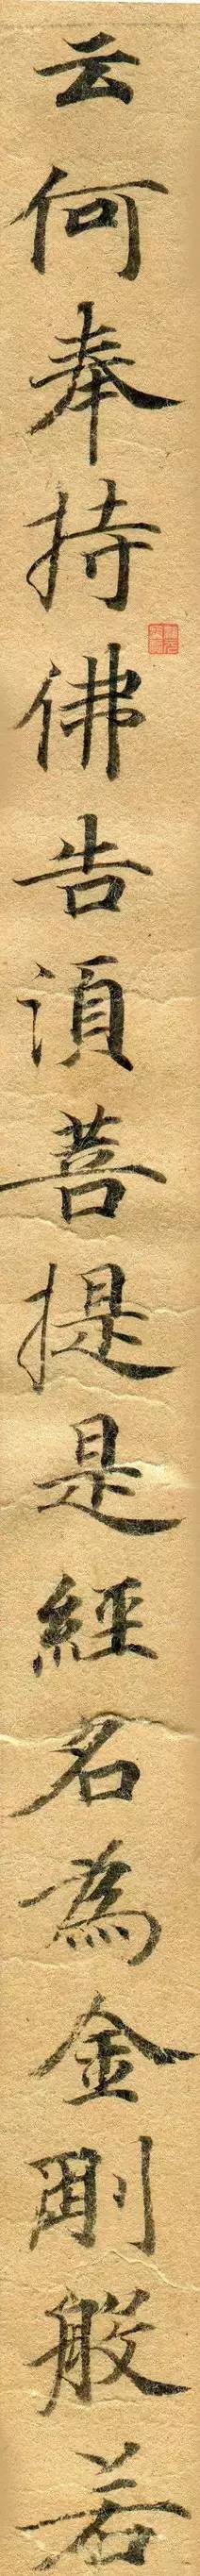 云何奉持佛告須菩提是經名為金剛般若